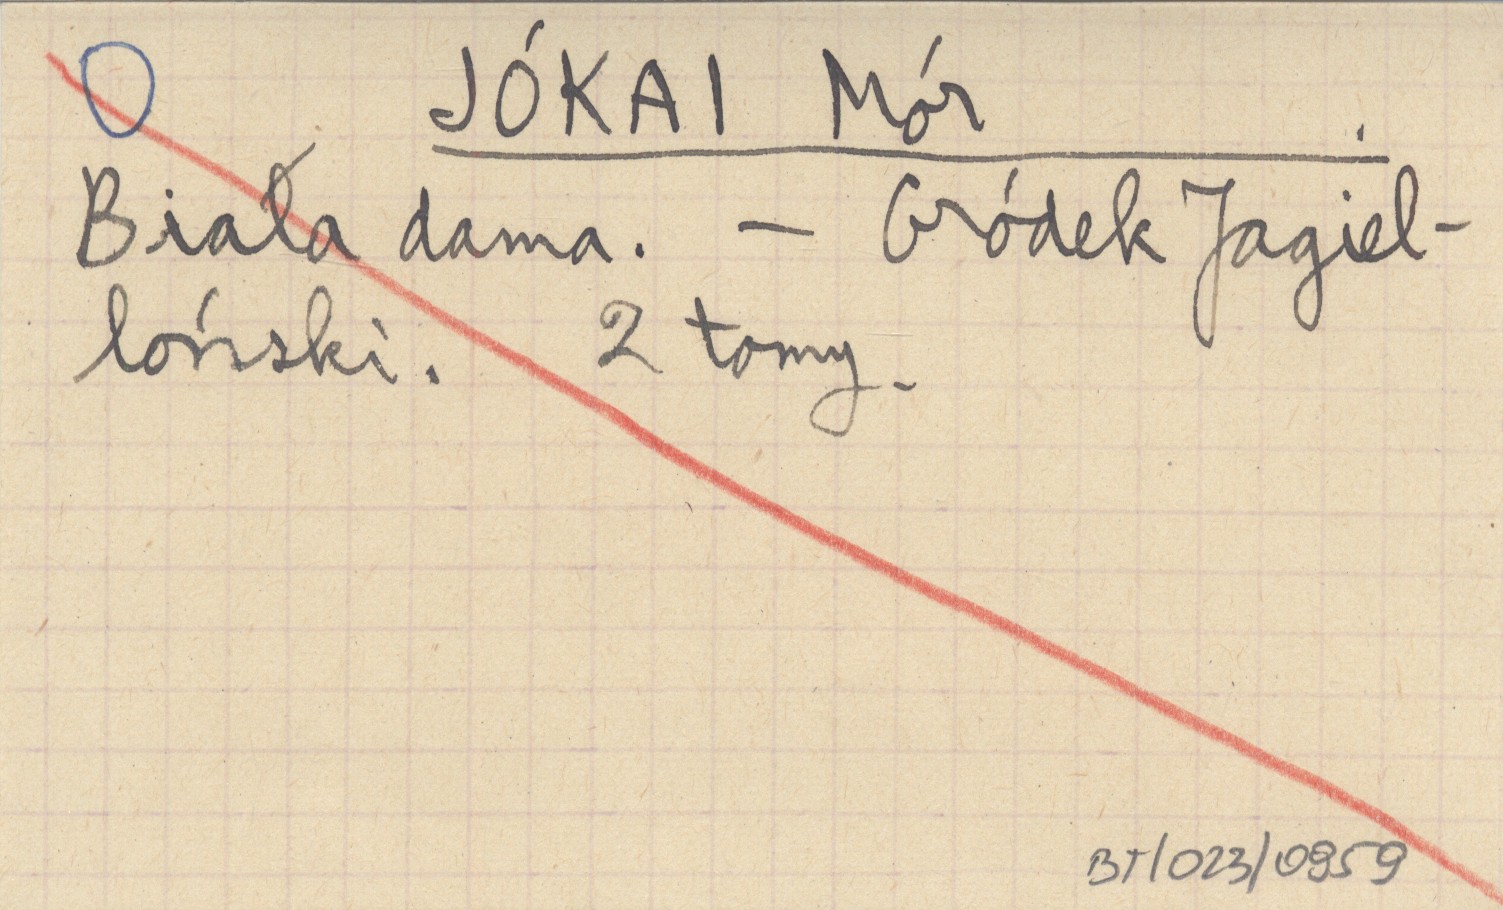 JÓKAI Mór
Biała dama. — Gródek Jagiel-
loński. 2 tomy.
BT/023/0959